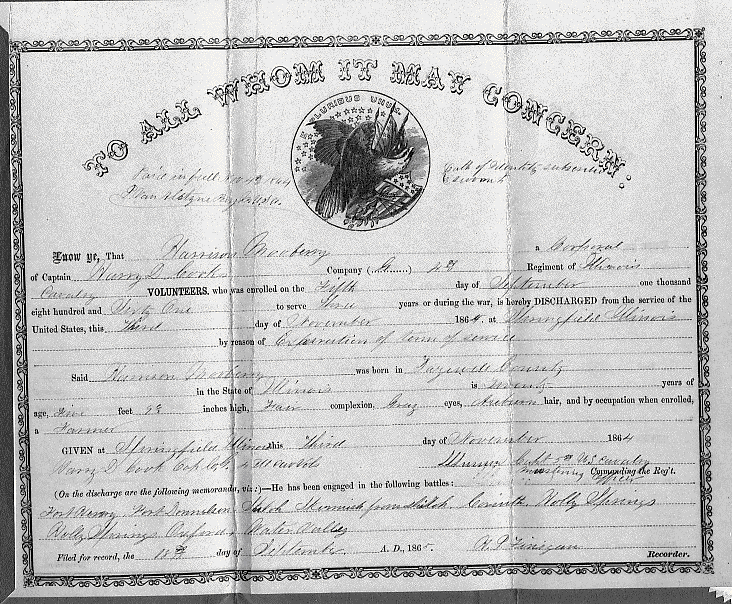 TO ALL WHOM IT MAY CONCERN:
E PLURIBUS UNUM
Paid in full
Know ye, That Harrison Mooberry a Corporal
of Captain Harry D. Cook Company (G......) 4th Regiment of Illinois
Cavalry VOLUNTEERS, who was enrolled on the Fifth day of September one thousand
eight hundred and Sixty One to serve Three years or during the war, is hereby DISCHARGED from the service of the
United States, this Third day of November 1864. at Springfield Illinois
by reason of Expiration of term of service
Said Harrison Mooberry was born in Tazewell County
in the State of Illinois is twenty years of
age, Five feet inches high, Fair complexion, Gray eyes, Auburn hair, and by occupation when enrolled,
a Farmer
GIVEN at Springfield Illinois this Third day of November 1864
Harry D Cook Co G, 4 Ill Vols Capt 5th US Cavalry
Mustering Officer Commanding the Reg't.
(On the discharge are the following memoranda, viz:)—He has been engaged in the following battles:
Fort Henry Fort Donnelson Shiloh Skirmish from Shiloh Corinth Holly Springs
Holly Springs Oxford Water Valley
Filed for record, the day of December A. D., 186 Recorder.